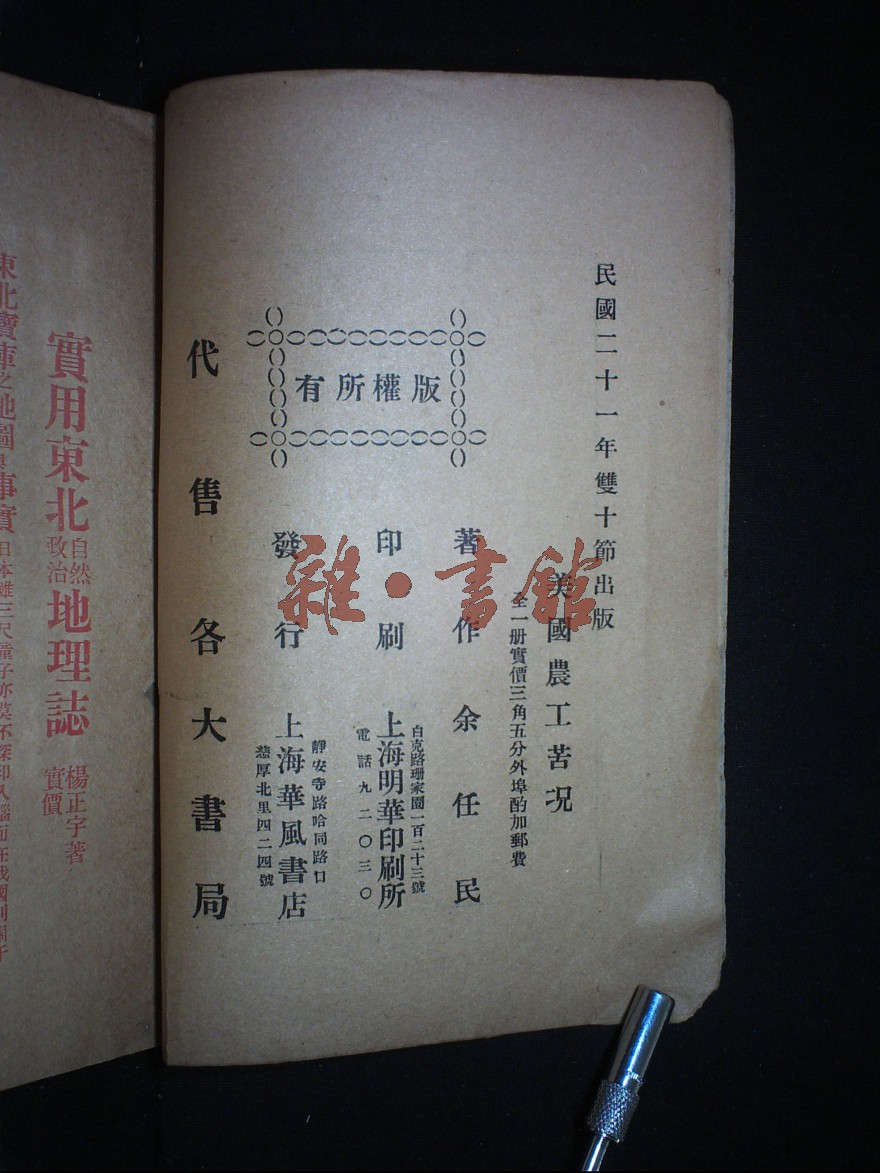 民國二十一年雙十節出版
美國農工苦况
全一册實價三角五分外埠酌加郵費
版權所有
著作 余任民
印刷 上海明華印刷所
白克路珊家園一百二十三號
電話九二〇三〇
發行 上海華風書店
靜安寺路哈同路口
慈厚北里四二四號
代售各大書局
雜·書館
實用東北自然政治地理誌
楊正宇著
實價
東北寶庫之地圖與事實